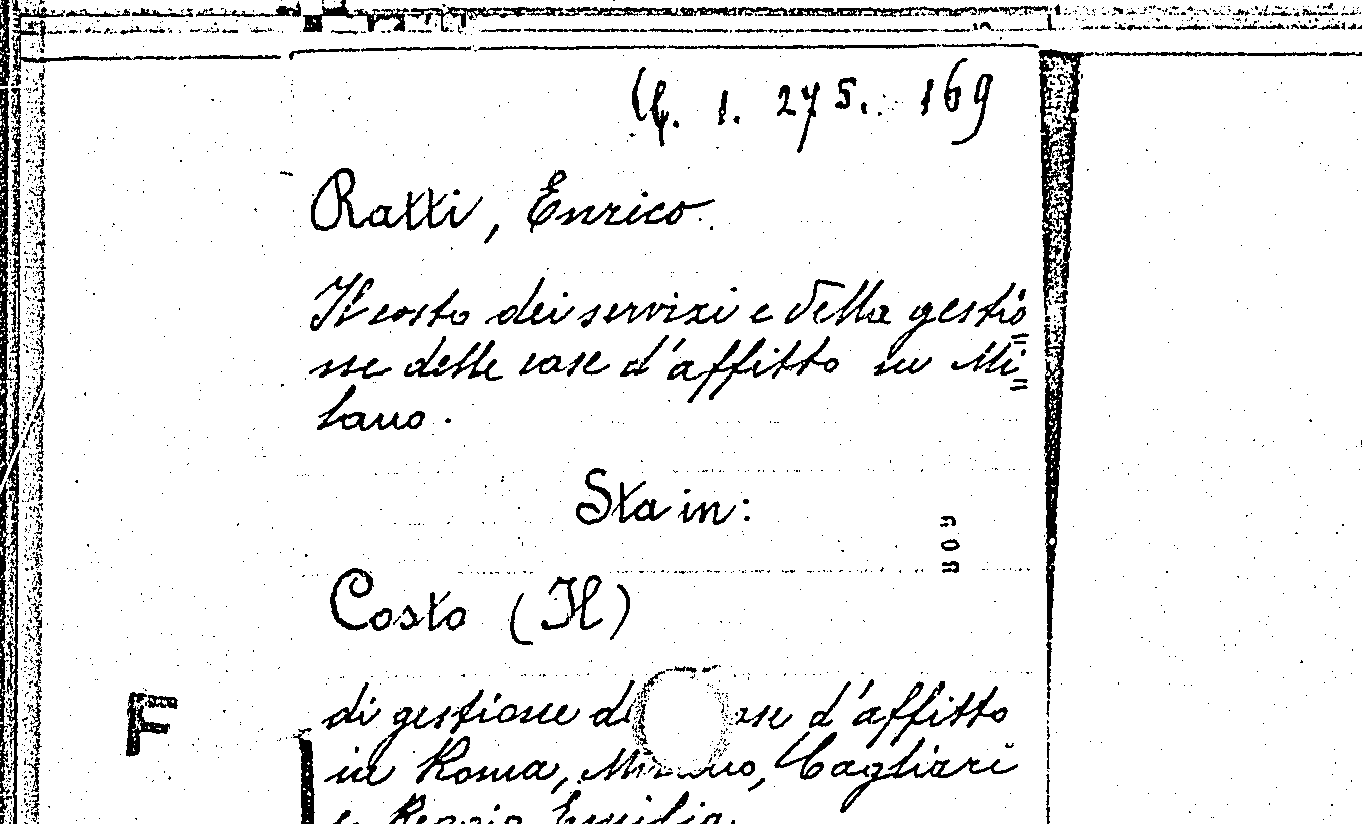 1. 275. 169
Ratti, Enrico.
Il costo dei servizi e della gestio=
ne delle case d'affitto in Mi=
lano.
Sta in:
Costo (Il)
di gestione d ase d'affitto
in Roma, Milano, Cagliari
e Reggio Emilia.
F